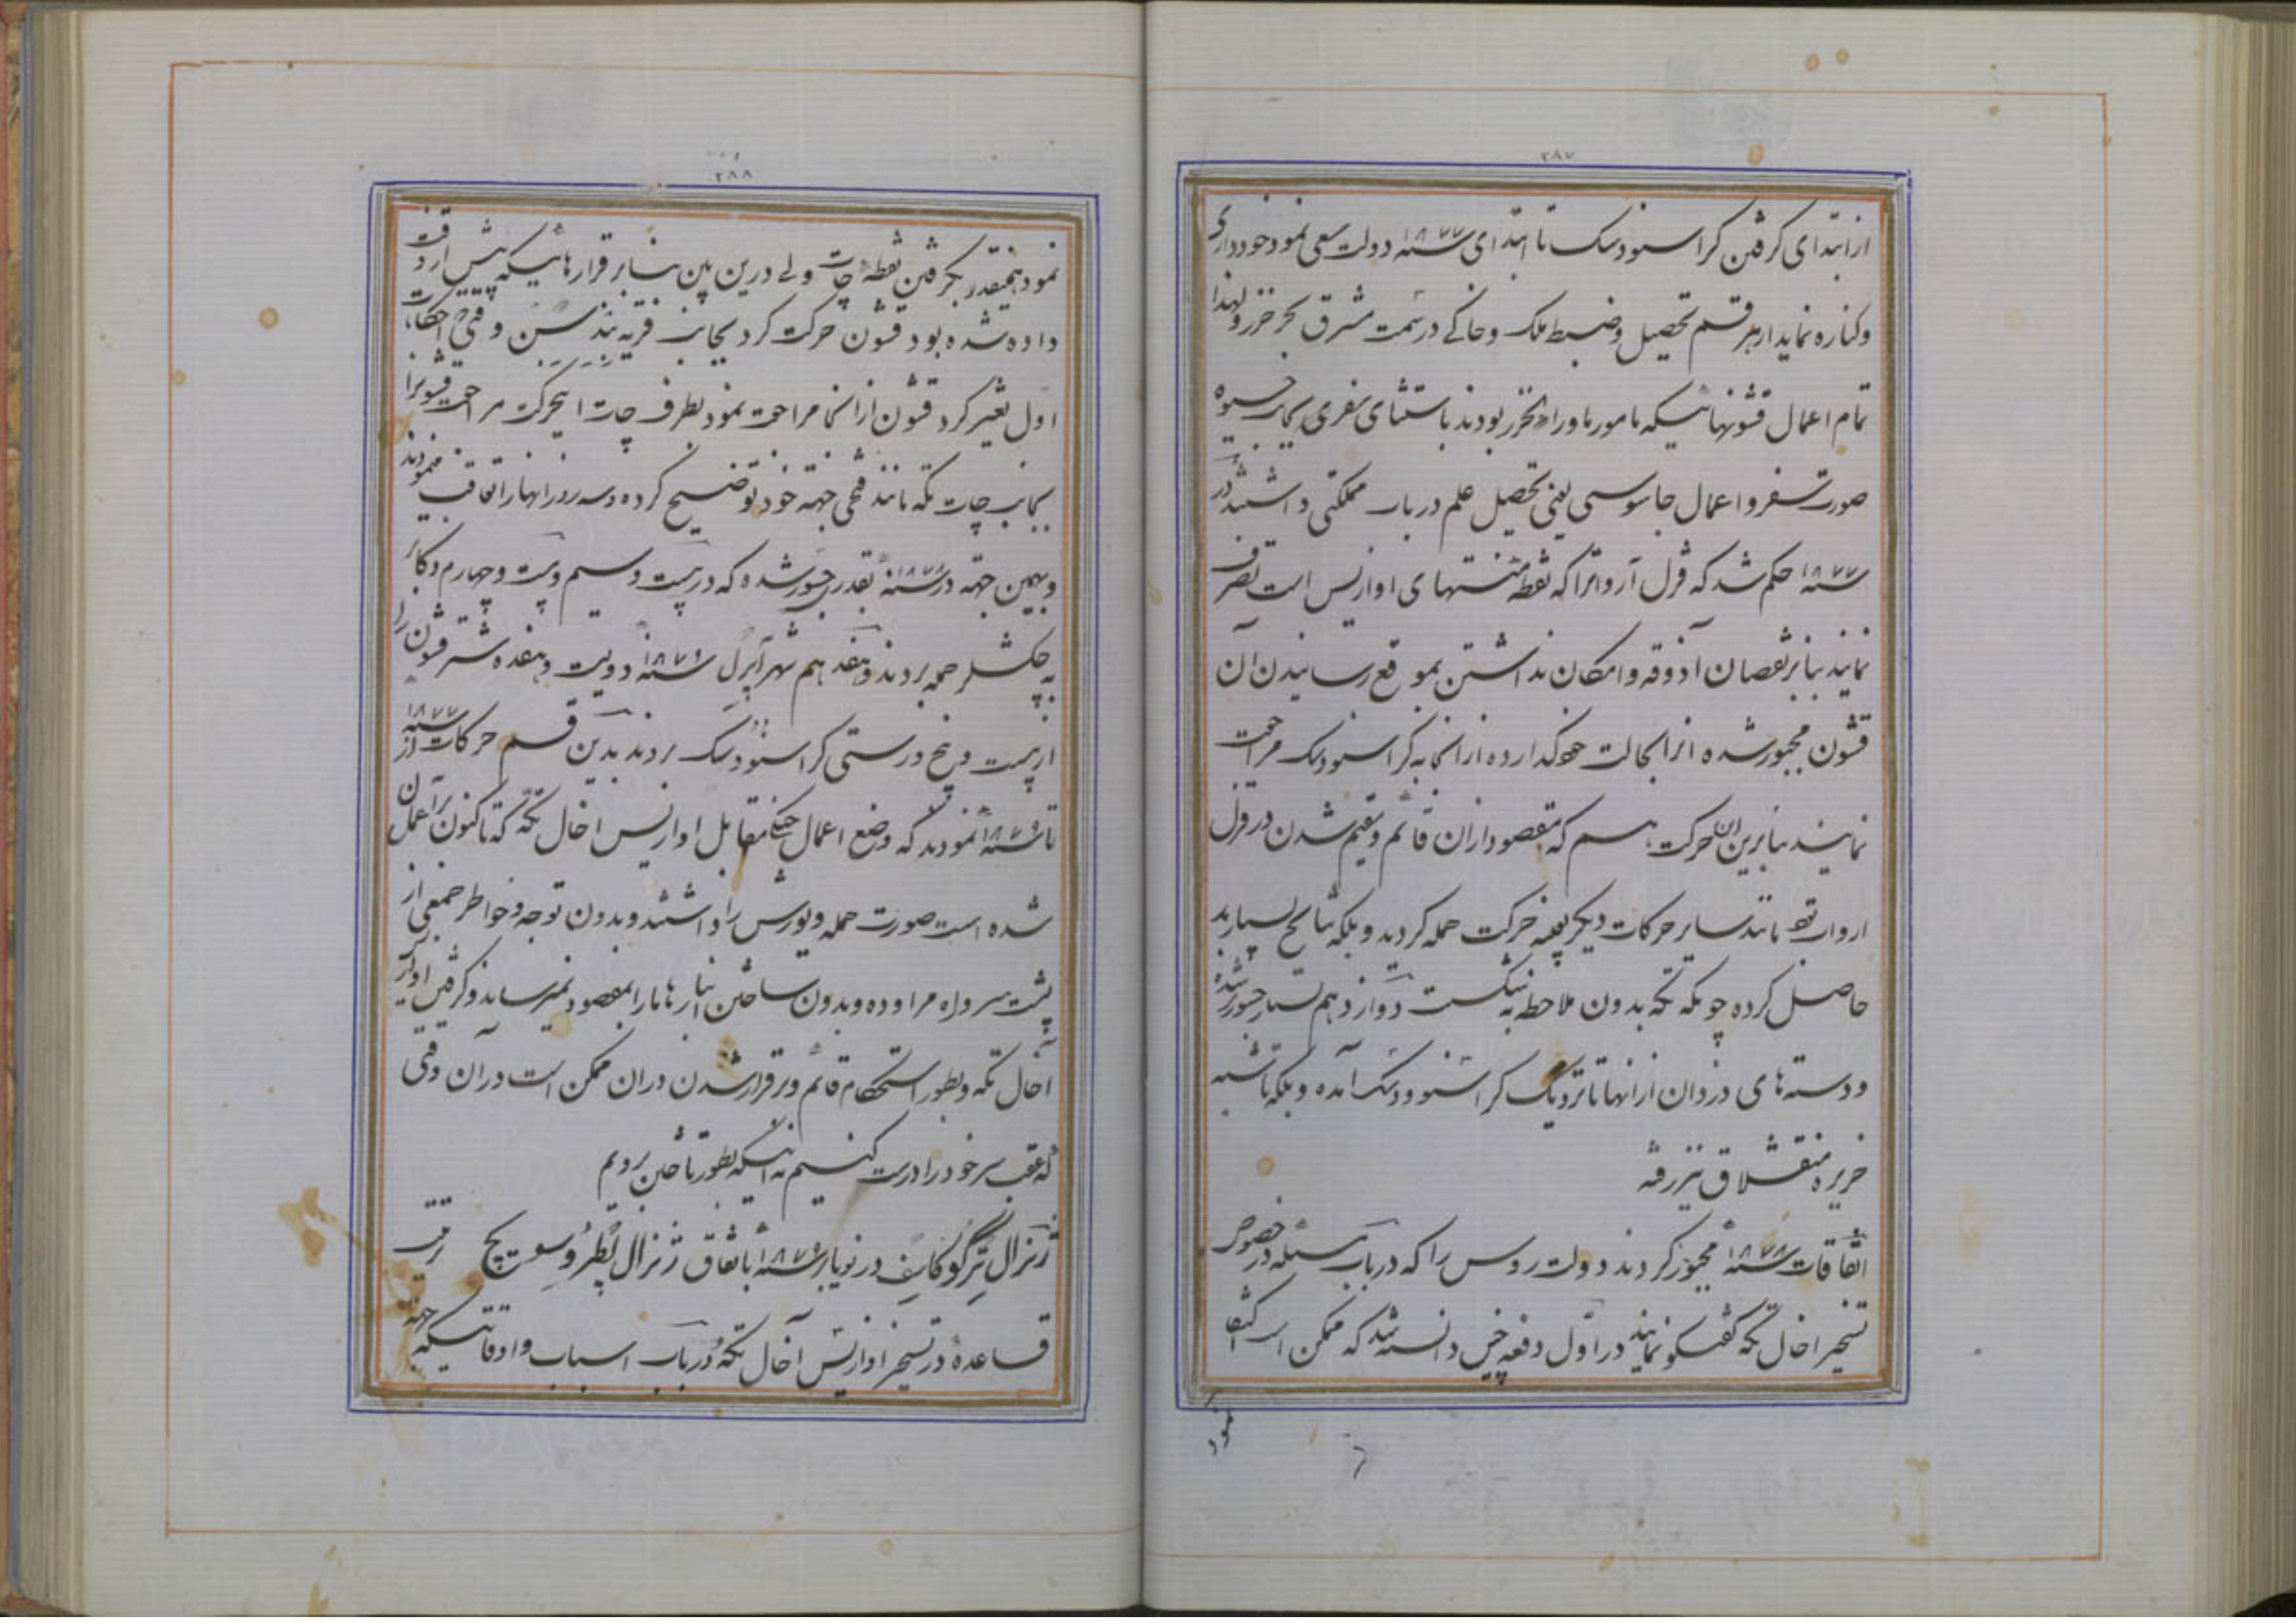 ۲۸۷
از ابتدای گرفتن کراسنودسک تا ابتدای سنه ۱۸۷۷ دولت سعی نمود خودداری
و کناره نماید از هر قسم تحصیل و ضبط ملک و خاکی در سمت مشرق بحر خزر و لهذا
تمام اعمال قشونهائیکه مامور ماوراء بحر خزر بودند باستثنای سفری بجانب خیوه
صورت سفر و اعمال جاسوسی یعنی تحصیل علم در باب مملکتی داشتند در
سنه ۱۸۷۷ حکم شد که قزل آروات را که نقطه منتهای اوازیس است تصرف
نمایند بنابر نقصان آذوقه و امکان نداشتن بموقع رسانیدن آن
قشون مجبور شده انرا بحالت خود گذارده از انجا به کراسنودسک مراجعت
نمایند بنابرین این حرکت هم که مقصود از ان قائم و مقیم شدن در قزل
اروات بود مانند سایر حرکات دیگر بعینه حرکت حمله گردید و بلکه نتایج بسیار بد
حاصل کرده چونکه تکه بدون ملاحظه شکست دوازدهم بسیار جسور شده
و دسته های دزدان از انها تا نزدیک کراسنوودسک آمده و بلکه تا شبه
جزیره منقشلاق نیز رفته
اتفاقات سنه ۱۸۷۸ مجبور کردند دولت روس را که در باب مسئله در خصوص
تسخیر اخال تکه گفتگو نمایند در اول دفعه چنین دانسته شد که ممکن است اکتفا
نمود
۲۸۸
نمود همینقدر بگرفتن نقطه چات ولی درین بین بنابر قرارهائیکه پیش از وقت
داده شده بود قشون حرکت کرد بجانب قریه بندسن وقتی احکامات
اول تغییر کرد قشون از انجا مراجعت نمود بطرف چات اینحرکت مراجعت قشونرا
بجانب چات تکه مانند فتحی جهته خود توضیح کرده و سه روز انها را تعاقب مینمودند
و بهمین جهته در سنه ۱۸۷۸ بقدری جسور شده که در بیست و سیم و بیست و چهارم دکابر
به چکشلر حمله بردند و هفدهم شهر آپریل سنه ۱۸۷۹ دویست و هفده شتر قشون را
از بیست ورخ درستی کراسنودسک بردند بدین قسم حرکات از سنه ۱۸۷۷
تا سنه ۱۸۷۹ نمودند که وضع اعمال جنگی مقابل اوازیس اخال تکه که تا کنون بر آن عمل
شده است صورت حمله و یورش را داشتند و بدون توجه و خواطر جمعی از
پشت سر و راه مراوده و بدون ساختن انبارها ما را بمقصود نمیرساند و گرفتن اوازیس
آخال تکه و بطور استحکام قائم و برقرار شدن در ان ممکن است در آن وقتی
که عقب سر خود را درست کنیم نه اینکه بطور تاختن برویم
ژنرال ترگوکاسف در نویابر سنه ۱۸۷۹ باتفاق ژنرال پطروسویچ رفت
قاعده در تسخیر اوازیس آخال تکه در باب اسباب و اوقاتیکه جهته